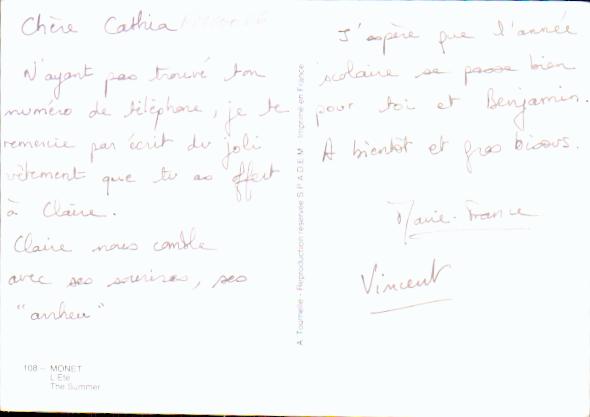 Chère Cathia
N'ayant pas trouvé ton
numéro de téléphone, je te
remercie par écrit du joli
vêtement que tu as offert
à Claire.
Claire nous comble
avec ses sourires, ses
"arrheu"
J'espère que l'année
scolaire se passe bien
pour toi et Benjamin.
A bientôt et gros bisous.
Marie-France
Vincent
A. Tournelle - Reproduction réservée S.P.A.D.E.M. Imprimé en France
108 - MONET
L'Eté
The Summer